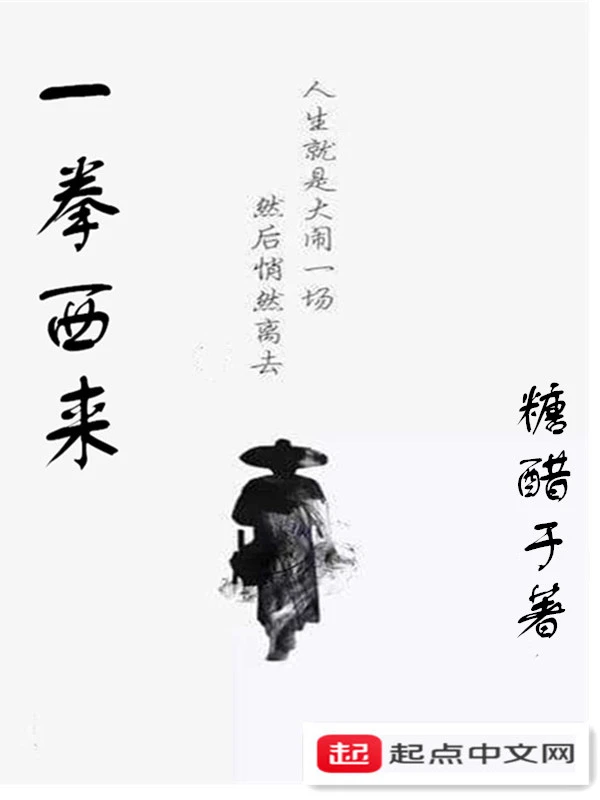 一拳西来
人生就是大闹一场
然后悄然离去
糖醋于著
起 起点中文网